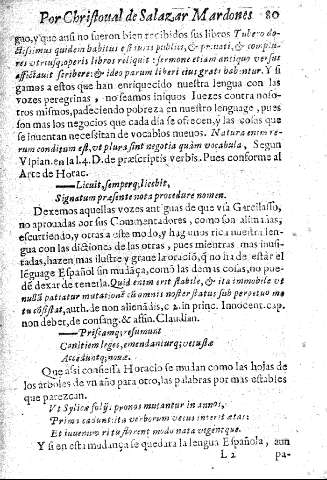 Por Christoual de Salazar Mardones 80
guo, y que ansi no fueron bien recibidos sus libros Tubero do-
ctissimus quidem habitus est iuris publici, & priuati, & complu-
res vtriusq; operis libros reliquit: sermone etiam antiquo versus
affectauit scribere: & ideo parum libri eius grati habentur. Y si
gamos a estos que han enriquecido nuestra lengua con las
vozes peregrinas, no seamos iniquos Iuezes contra noso-
tros mismos, padeciendo pobreza en nuestro lenguage, pues
son mas los negocios que cada dia se ofrecen, y las cosas que
se inuentan necessitan de vocablos nueuos. Natura enim re-
rum conditum est, vt plura sint negotia quàm vocabula, Segun
Vlpian. en la l. 4. D. de præscriptis verbis. Pues conforme al
Arte de Horac.
Licuit, semperq; licebit,
Signatum præsente nota procudere nomen.
Dexemos aquellas vozes antiguas de que vsa Garcilasso,
no aprouadas por sus Commentadores, como son
escurriendo, y otras a este modo, y hagamos rica nuestra len-
gua con las dictiones de las otras, pues mientras mas inusi-
tadas, hazen mas ilustre y graue la oració, q̃ no ha de estár el
lẽguage Español sin mudãça, como las demas cosas, no pue-
de dexar de tenerla. Quid enim erit stabile, & ita immobile vt
nullā patiatur mutationē cū omnis noster status sub perpetuo mo
tu cōsistat, auth. de non alienādis, c 2. in princ. Innocent. cap.
non debet, de consang. & affin. Claudian.
Priscamq; resumunt
Canitiem leges, emendanturq; vetustæ
Acceduntq; nouæ.
Que assi confiessa Horacio se mudan como las hojas de
los arboles de vn año para otro, las palabras por mas estables
que parezcan.
Vt Sylvæ folijs pronos mutantur in annos,
Prima cadunt: ita verborum vetus interit ætas:
Et iuvenum ritu florent modo nata vigentque.
Y si en esta mudança se quedara la lengua Española, aun
L 2 pa-